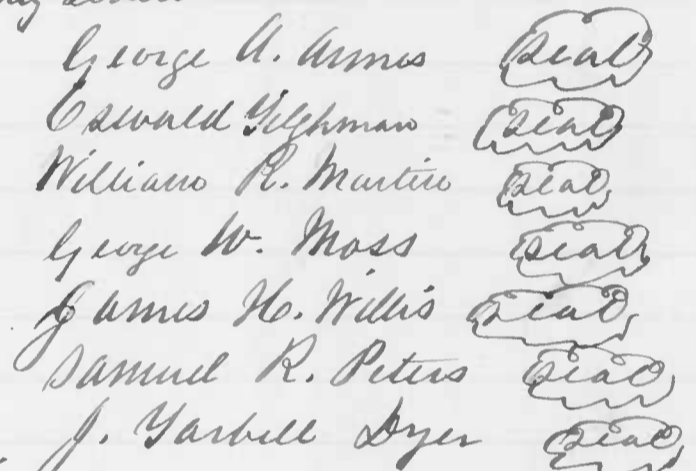 George A. Armes seal
Oswald Tilghman seal
William R. Martin seal
George W. Moss seal
James H. Willis seal
Samuel R. Peters seal
J. Tarbell Dyer seal